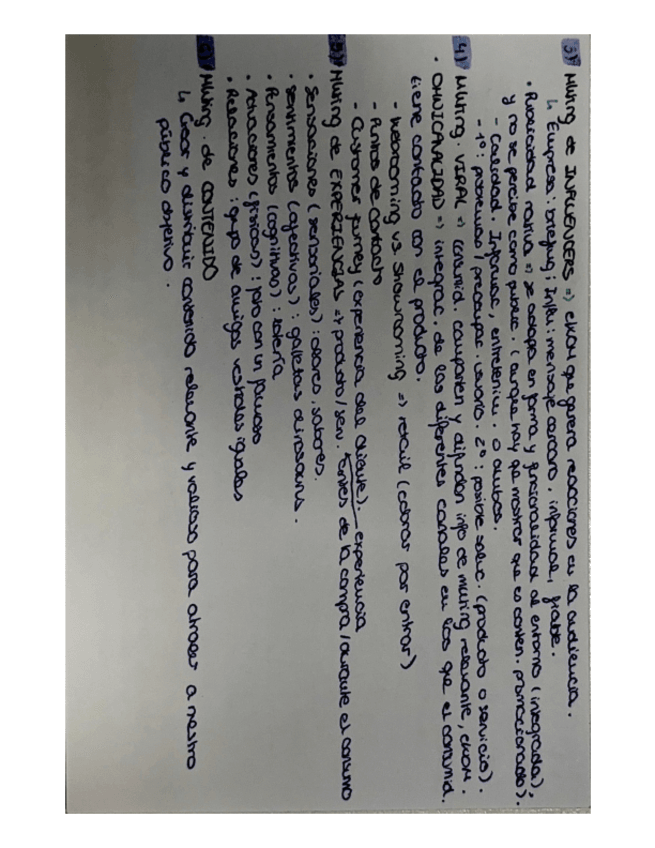 3) Mkting de INFLUENCERS => eWOM que genera reacciones en la audiencia.
↳ Empresa: briefing; Influ: mensaje cercano, informal, fiable.
• Publicidad nativa => se adapta en forma y funcionalidad al entorno (integrada),
y no se percibe como public. (aunque hay que mostrar que es conten. promocionado).
- Calidad. Informar, entretener. o ambos.
- 1º: problemas / preocupac. usuario. 2º: posible soluc. (producto o servicio).
4) Mkting. VIRAL => consumid. comparten y difunden info de mkting relevante, eWOM.
• OMNICANALIDAD => integrac. de los diferentes canales en los que el consumid.
tiene contacto con el producto.
- Webrooming vs Showrooming => retail (cobrar por entrar)
- Puntos de contacto
- Customer journey (experiencia del cliente).
5) Mkting de EXPERIENCIAS => producto/serv. + experiencia antes de la compra / durante el consumo
• Sensaciones (sensoriales): olores, sabores.
• Sentimientos (afectivas): galletas dinosaurs.
• Pensamientos (cognitivas): lotería
• Actuaciones (físicas): foto con un famoso
• Relaciones: grupo de amigos vestidos iguales
6) Mkting. de CONTENIDO
↳ Crear y distribuir contenido relevante y valioso para atraer a nuestro
público objetivo.